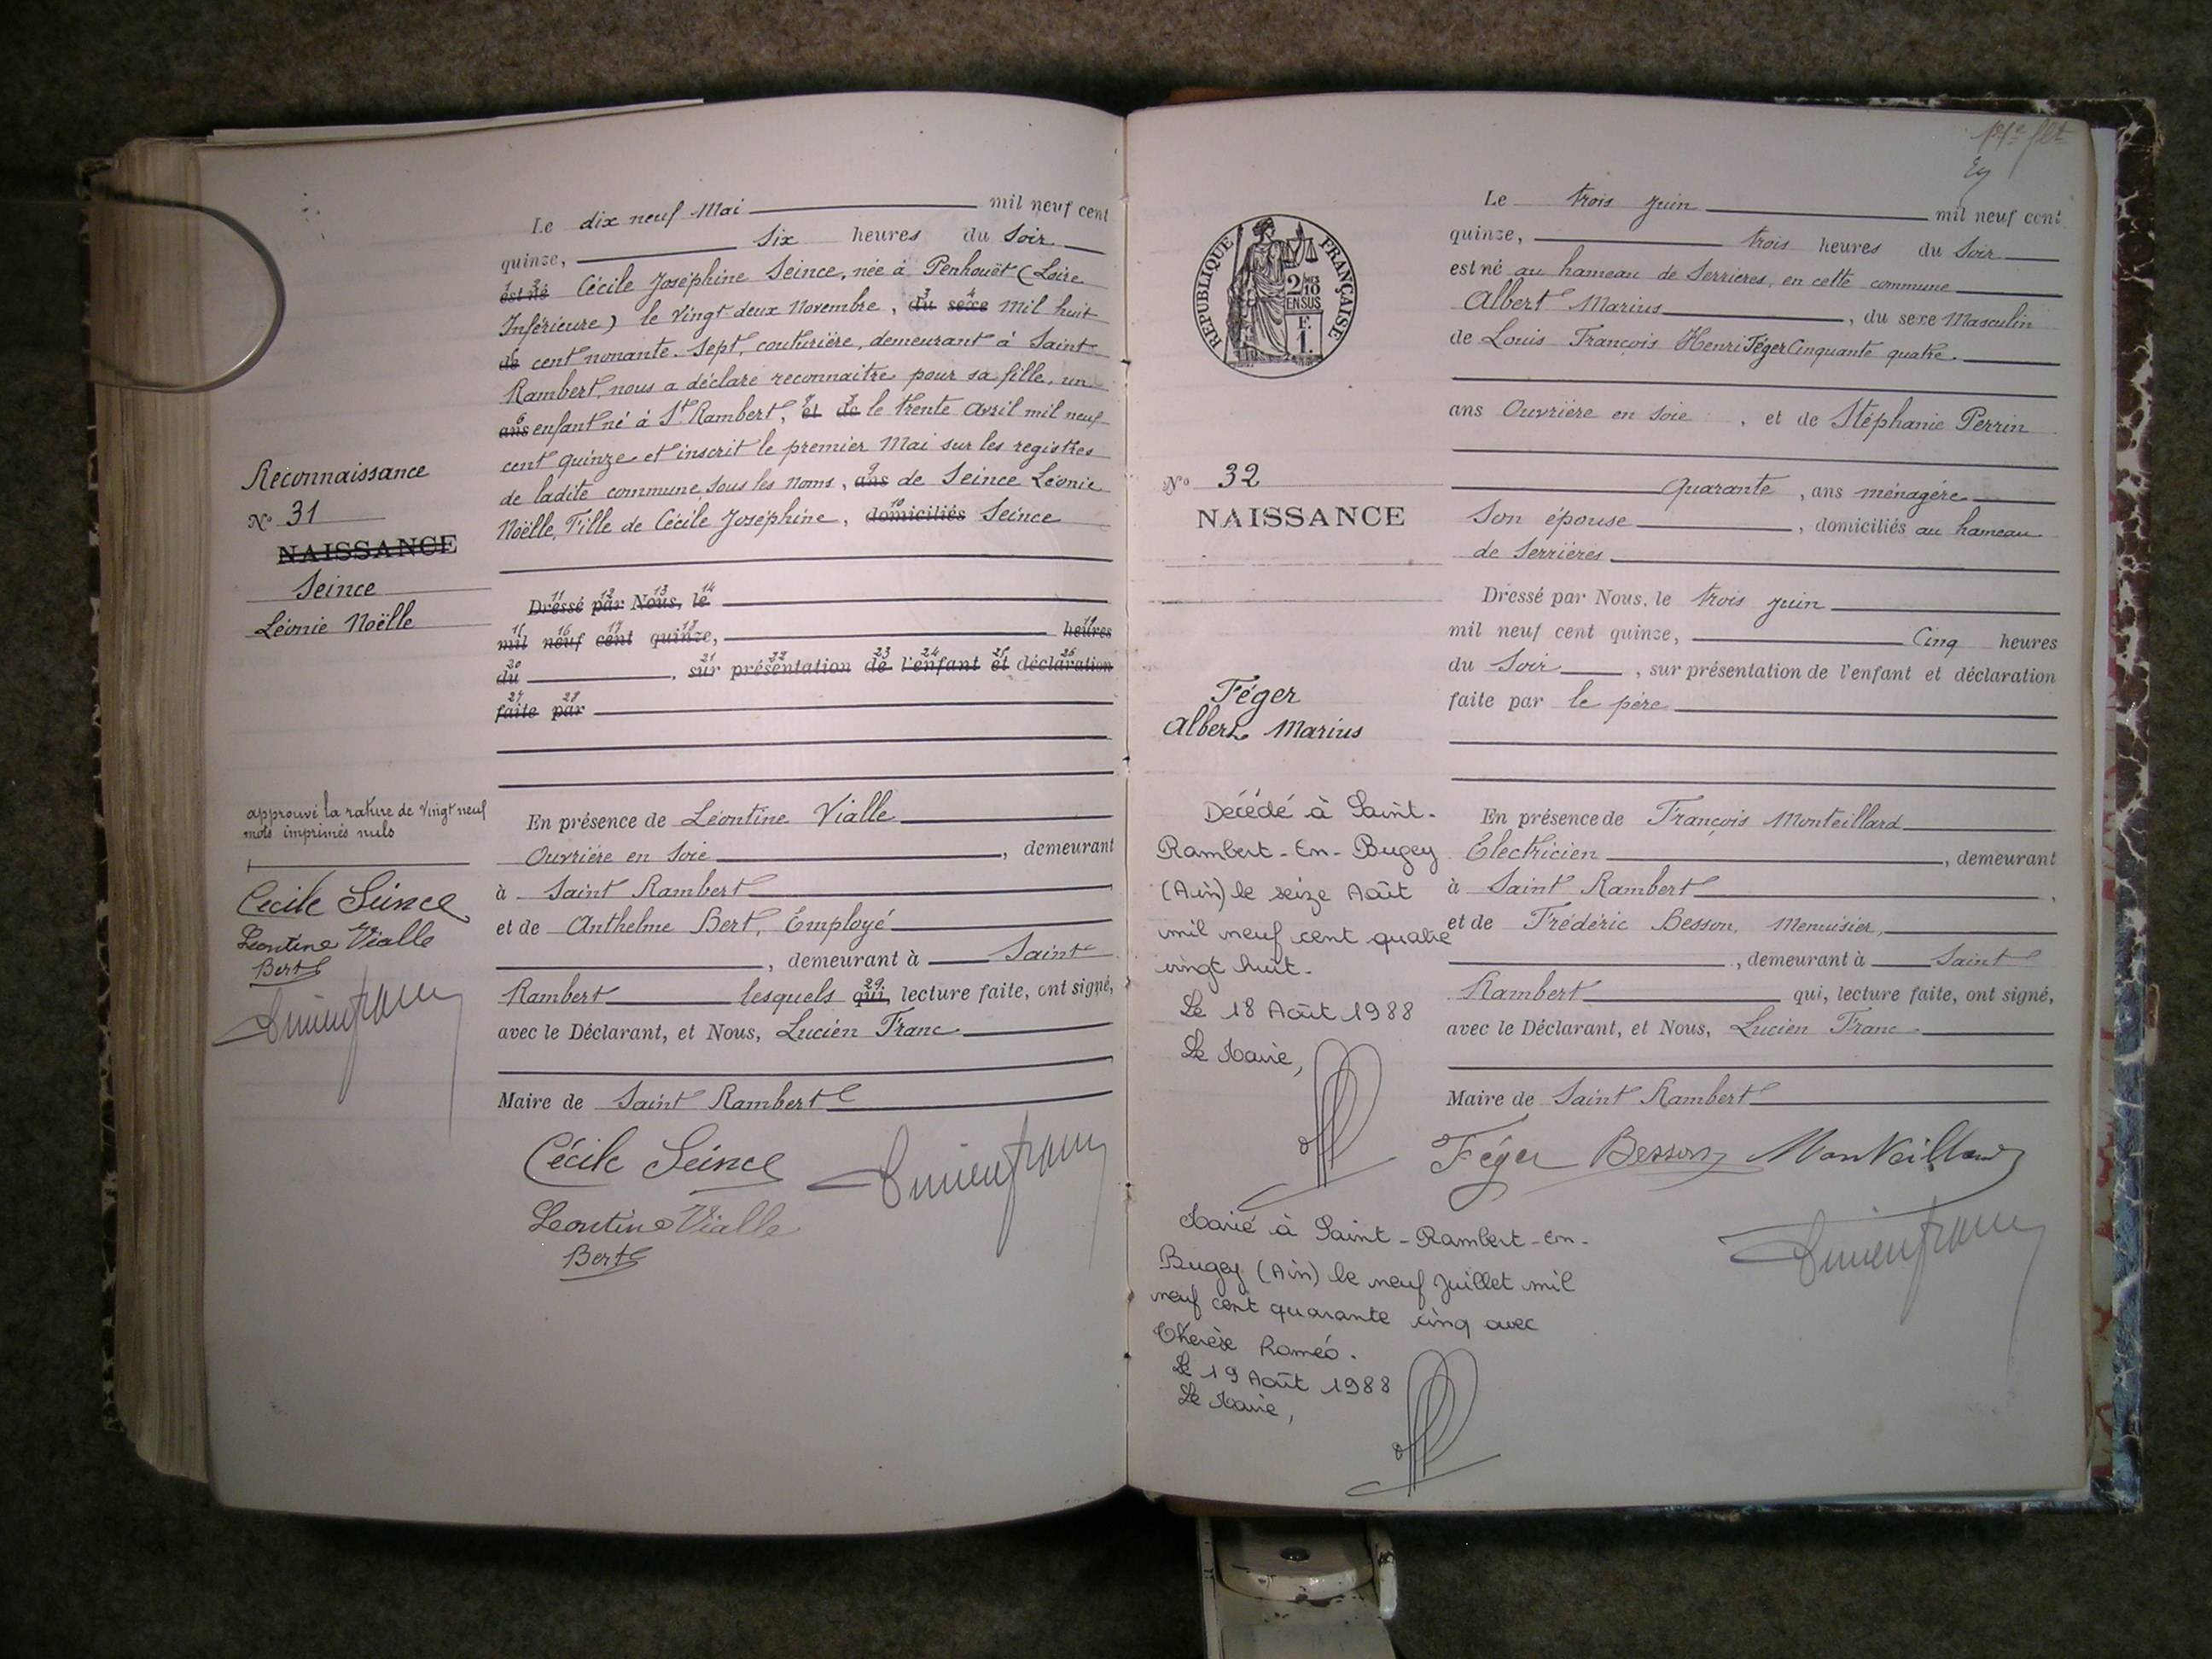 Le dix neuf Mai mil neuf cent
quinze, Six heures du Soir
est né Cécile Joséphine Seince, née à Penhouët (Loire
Inférieure) le vingt deux Novembre, du sexe mil huit
de cent nonante-sept, couturière, demeurant à Saint-
Rambert, nous a déclaré reconnaitre pour sa fille, un
ans enfant né à St Rambert, et de le trente avril mil neuf
cent quinze et inscrit le premier Mai sur les registres
de ladite commune, sous les noms, ans de Seince Léonie
Noëlle, Fille de Cécile Joséphine, domiciliés Seince
Reconnaissance
No 31
NAISSANCE
Seince
Léonie Noëlle
Dressé par Nous, le
mil neuf cent quinze, heures
du , sur présentation de l'enfant et déclaration
faite par
approuvé la rature de vingt neuf
mots imprimés nuls
Cécile Seince
Leontine Vialle
Bert
En présence de Léontine Vialle
Ouvrière en Soie , demeurant
à Saint Rambert
et de Anthelme Bert, Employé
, demeurant à Saint
Rambert lesquels qui, lecture faite, ont signé,
avec le Déclarant, et Nous, Lucien Franc
Maire de Saint Rambert
Cécile Seince
Leontine Vialle
Bert
RÉPUBLIQUE FRANÇAISE
2/10
EN SUS
F.
1.
Le trois juin mil neuf cent
quinze, trois heures du Soir
est né au hameau de Serrières, en cette commune
Albert Marius , du sexe Masculin
de Louis François Henri Féger Cinquante quatre
ans Ouvrière en soie , et de Stéphanie Perrin
Quarante , ans ménagère
Son épouse , domiciliés au hameau
de Serrières
No 32
NAISSANCE
Féger
Albert Marius
Dressé par Nous, le trois juin
mil neuf cent quinze, Cinq heures
du Soir , sur présentation de l'enfant et déclaration
faite par le père
En présence de François Monteillard
Electricien , demeurant
à Saint Rambert ,
et de Frédéric Besson, Menuisier,
, demeurant à Saint
Rambert qui, lecture faite, ont signé,
avec le Déclarant, et Nous, Lucien Franc
Maire de Saint Rambert
Féger Besson Monteillard
Décédé à Saint-
Rambert-En-Bugey
(Ain) le seize Août
mil neuf cent quatre
vingt huit.
Le 18 Août 1988
Le Maire,
Marié à Saint-Rambert-en-
Bugey (Ain) le neuf Juillet mil
neuf cent quarante cinq avec
Thérèse Roméo.
Le 19 Août 1988
Le Maire,